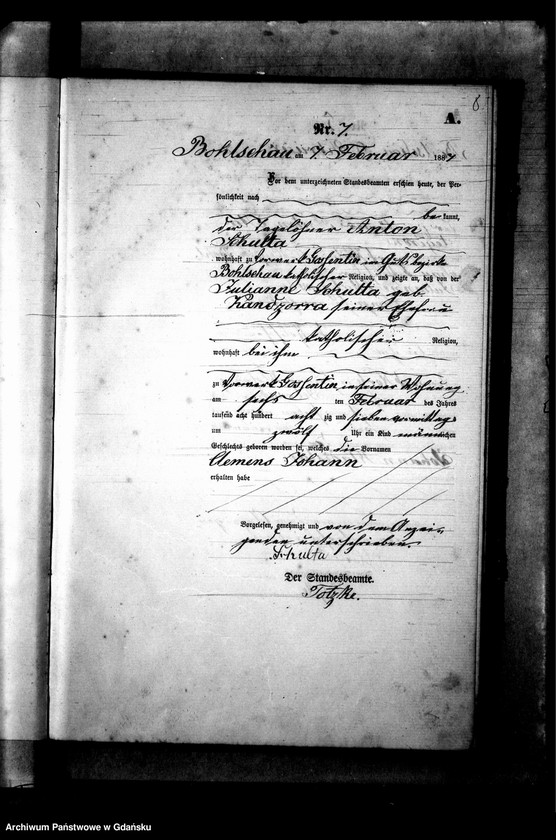 8
A.
Nr. 7.
Bohlschau am 7. Februar 1887
Vor dem unterzeichneten Standesbeamten erschien heute, der Per-
sönlichkeit nach
bekannt,
der Tagelöhner Anton
Schulta
wohnhaft zu Vorwerk Gossentin im Gutsbezirke
Bohlschau katholischer Religion, und zeigte an, daß von der
Julianne Schulta geb.
Kandzorra seiner Ehefrau
katholischer Religion,
wohnhaft bei ihm
zu Vorwerk Gossentin in seiner Wohnung
am sechs ten Februar des Jahres
tausend acht hundert acht zig und sieben vormittags
um zwölf Uhr ein Kind männlichen
Geschlechts geboren worden sei, welches die Vornamen
Clemens Johann
erhalten habe
Vorgelesen, genehmigt und von dem Anzei-
genden unterschrieben.
Schulta
Der Standesbeamte.
Totzke.
Archiwum Państwowe w Gdańsku